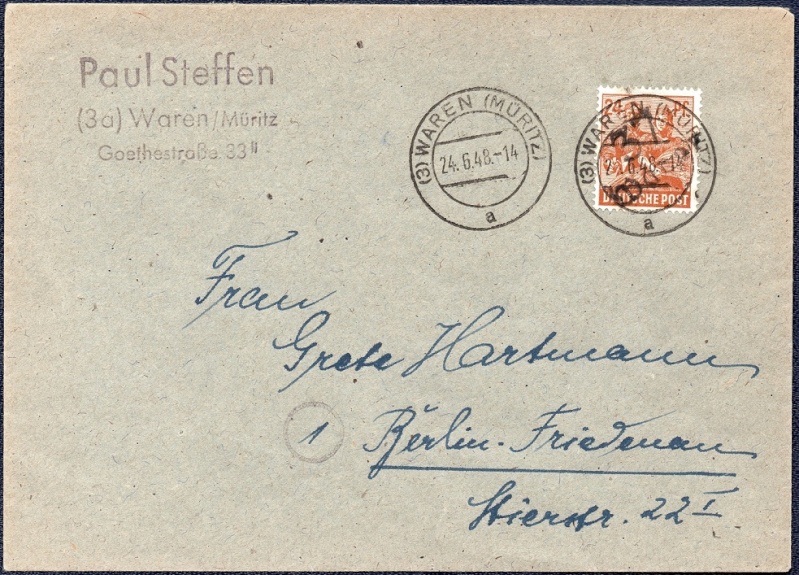 Paul Steffen
(3a) Waren/Müritz
Goethestraße 33 II
(3) WAREN (MÜRITZ)
24.6.48.-14
a
24
(3) WAREN (MÜRITZ)
24.6.48.-14
DEUTSCHE POST
a
Frau
Grete Hartmann
1 Berlin-Friedenau
Stierstr. 22 I